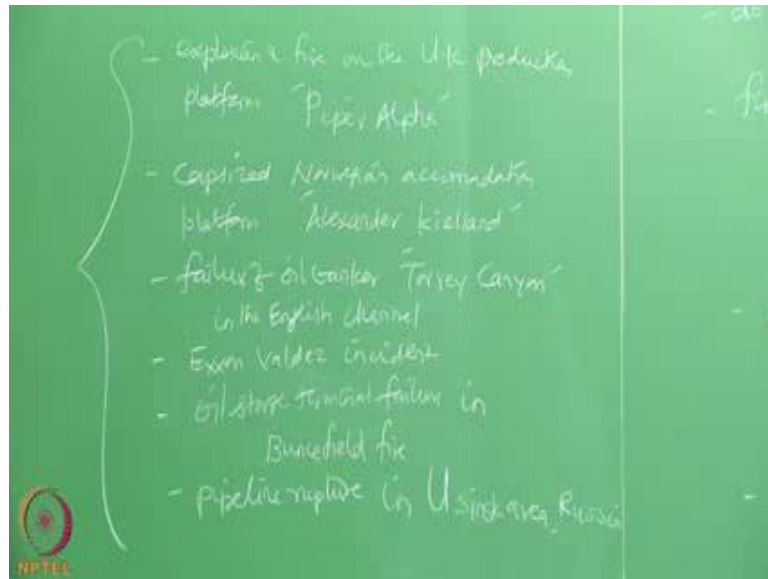 - explosion & fire on the U.K production
platform "Piper Alpha"
- Capsized Norwegian accomadation
platform "Alexander Kielland"
- failure of oil tanker "Torrey Canyon"
in the English channel
- Exxon Valdez incident
- oil storage terminal failure in
Buncefield fire
- pipeline rupture in Usinsk area, Russia
- do
- fir
NPTEL